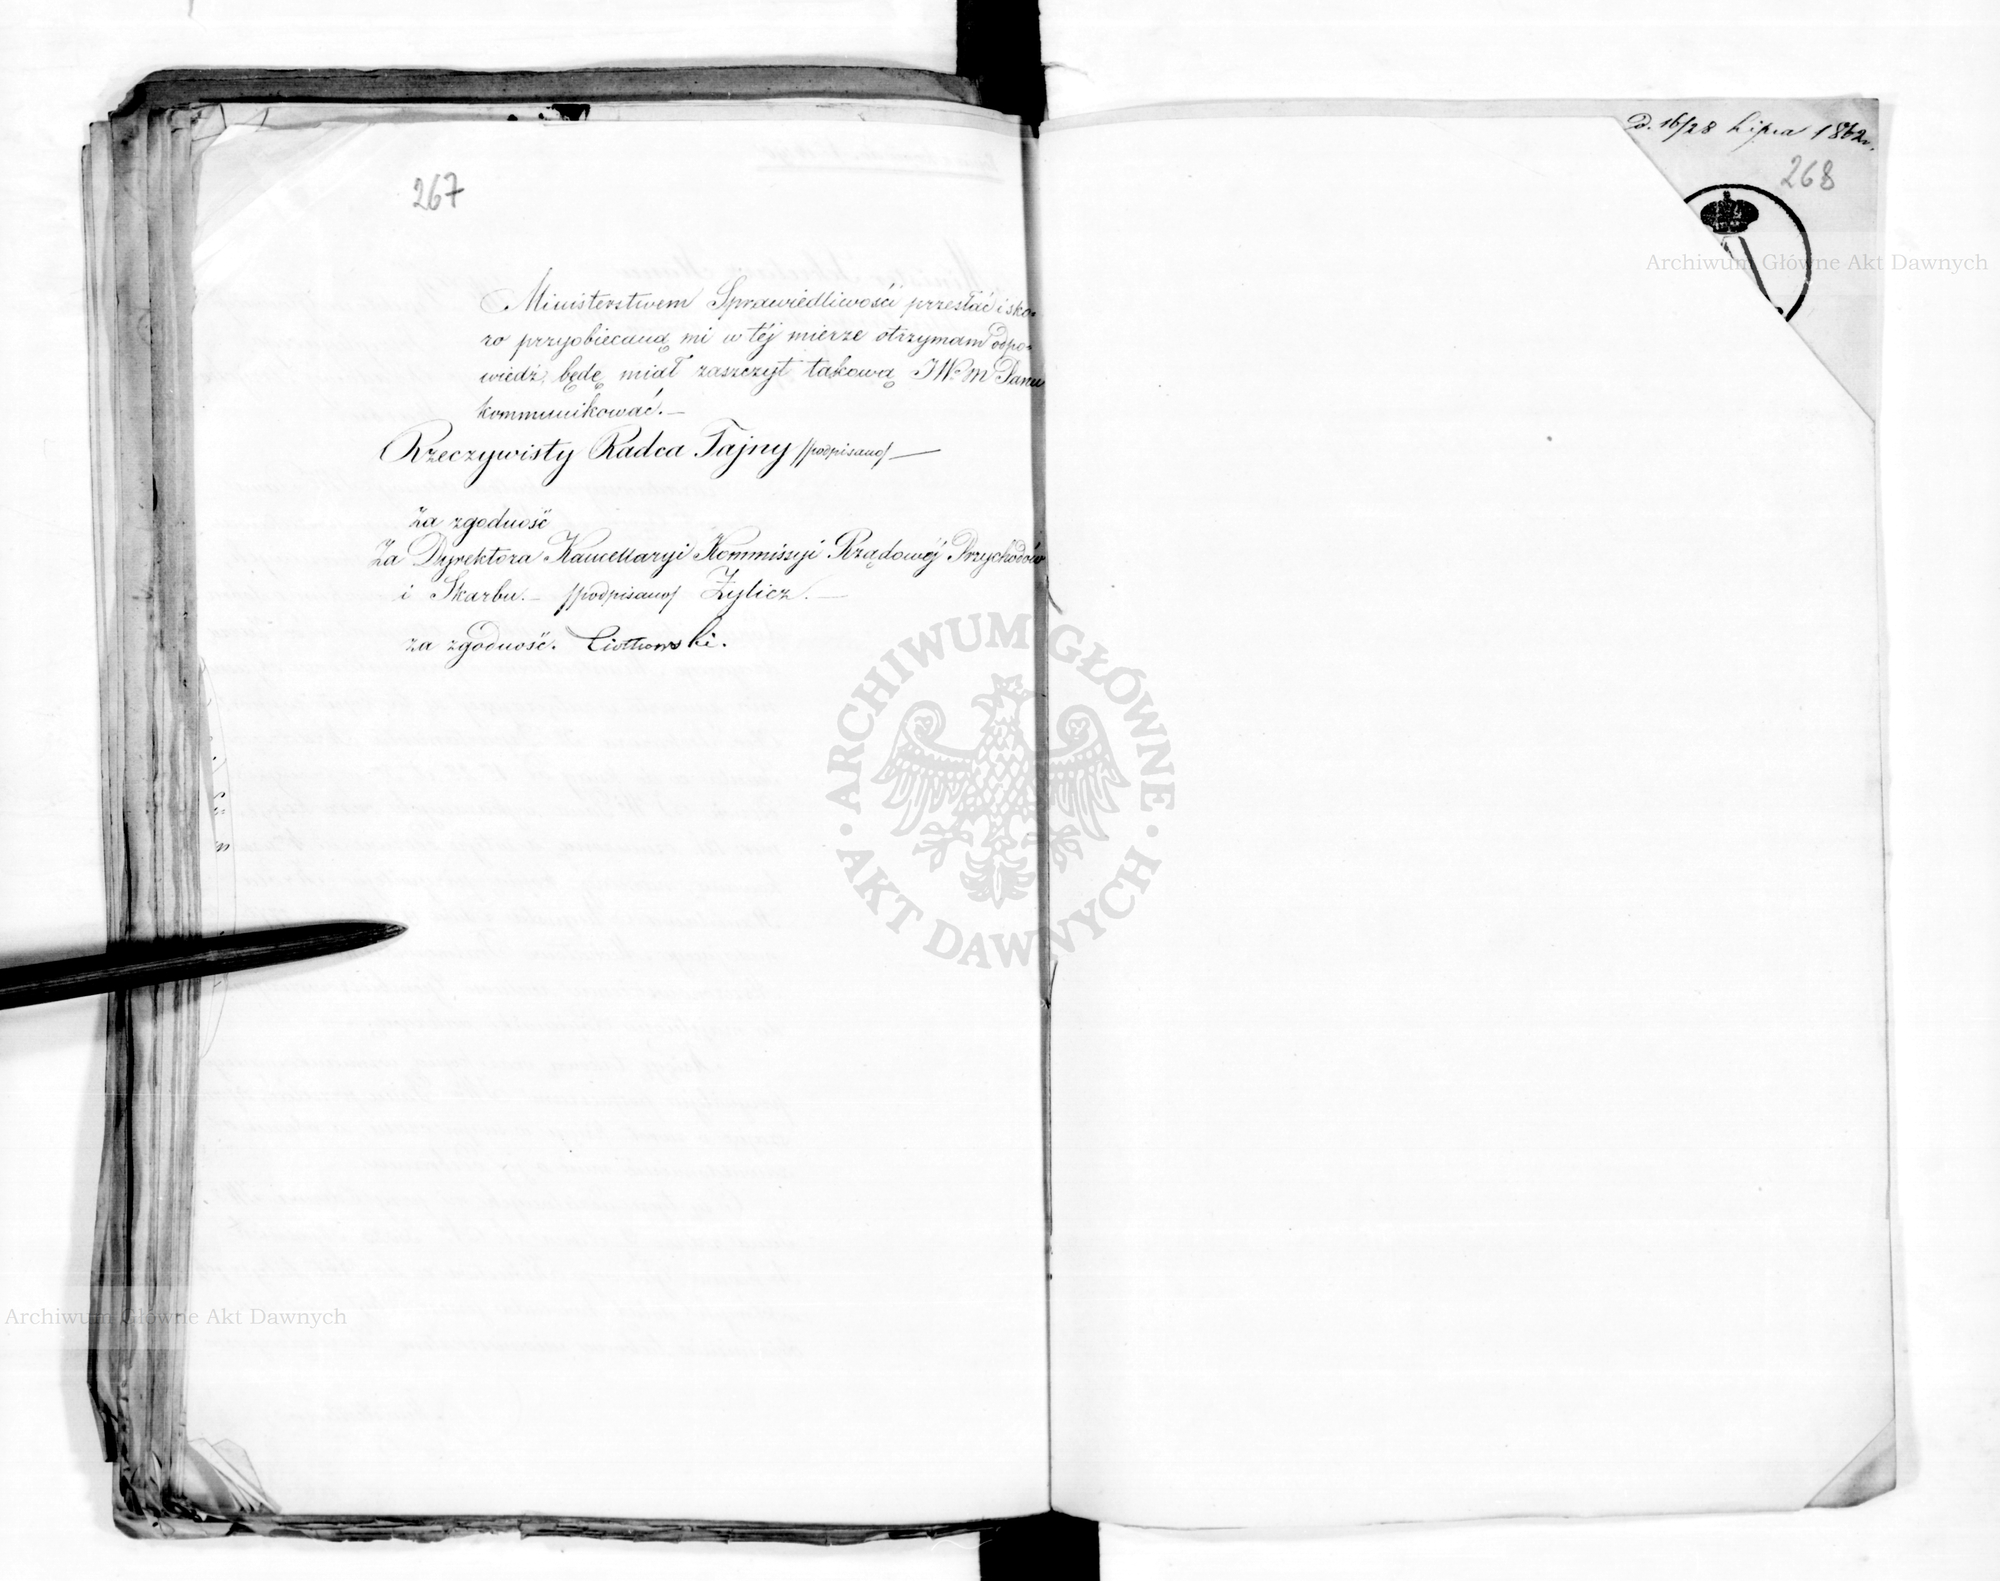 267
Ministerstwem Sprawiedliwości przesłać i sko-
ro przyobiecaną mi w téj mierze otrzymam odpo-
wiedź, będę miał zaszczyt takową JW-m Panu
kommunikować. —
Rzeczywisty Radca Tajny /podpisano/ —
Za zgodność
Za Dyrektora Kancellaryi Kommissyi Rządowéj Przychodów
i Skarbu. — /podpisano/ Żylicz. —
za zgodność.
D. 16/28 Lipca 1862 r.
268
Archiwum Główne Akt Dawnych
ARCHIWUM GŁÓWNE
AKT DAWNYCH
Archiwum Główne Akt Dawnych